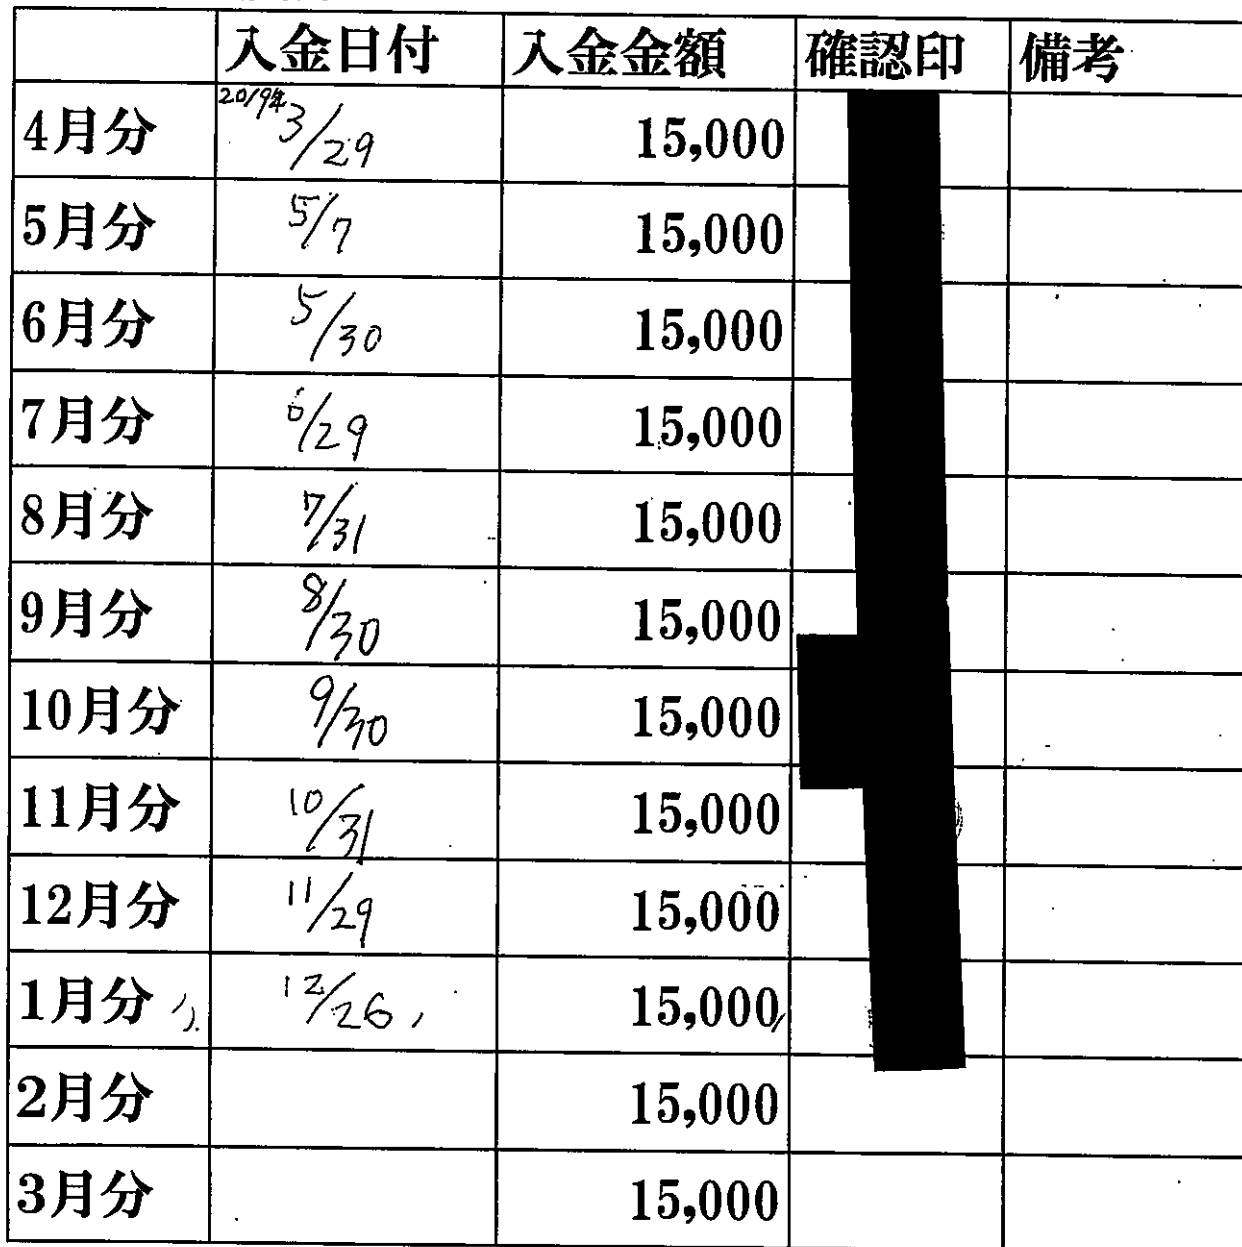 入金日付 入金金額 確認印 備考
4月分 2019年3/29 15,000
5月分 5/7 15,000
6月分 5/30 15,000
7月分 6/29 15,000
8月分 7/31 15,000
9月分 8/30 15,000
10月分 9/30 15,000
11月分 10/31 15,000
12月分 11/29 15,000
1月分 12/26 15,000
2月分 15,000
3月分 15,000